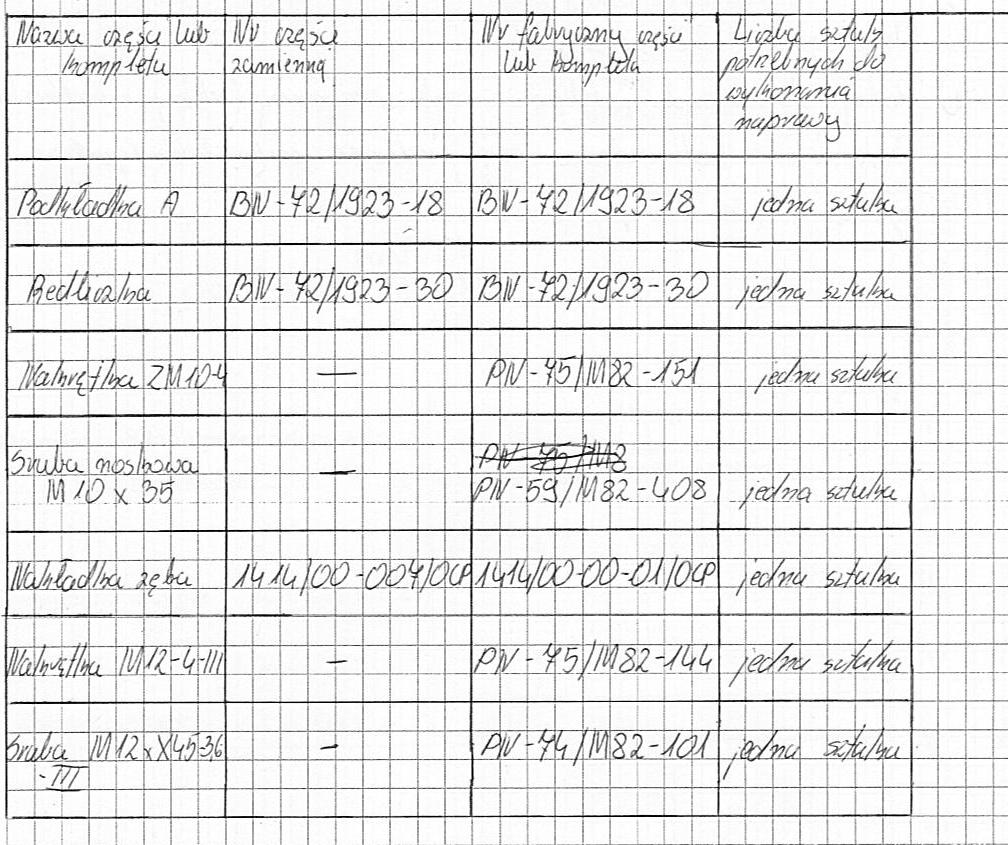 Nazwa części lub Nr części Nr fabryczny części Liczba sztuk
kompletu zamienną lub kompletu potrzebnych do
wykonania
naprawy
Podkładka A BN-72/1923-18 BN-72/1923-18 jedna sztuka
Redliczka BN-72/1923-30 BN-72/1923-30 jedna sztuka
Nakrętka ZM10-4 — PN-75/M82-151 jedna sztuka
Śruba noskowa — PN-75/M8
M10 x 35 PN-59/M82-408 jedna sztuka
Nakładka zęba 1414/00-007/0CP 1414/00-00-01/0CP jedna sztuka
Nakrętka M12-4-III — PN-75/M82-144 jedna sztuka
Śruba M12xX45-3,6 — PN-74/M82-101 jedna sztuka
-III